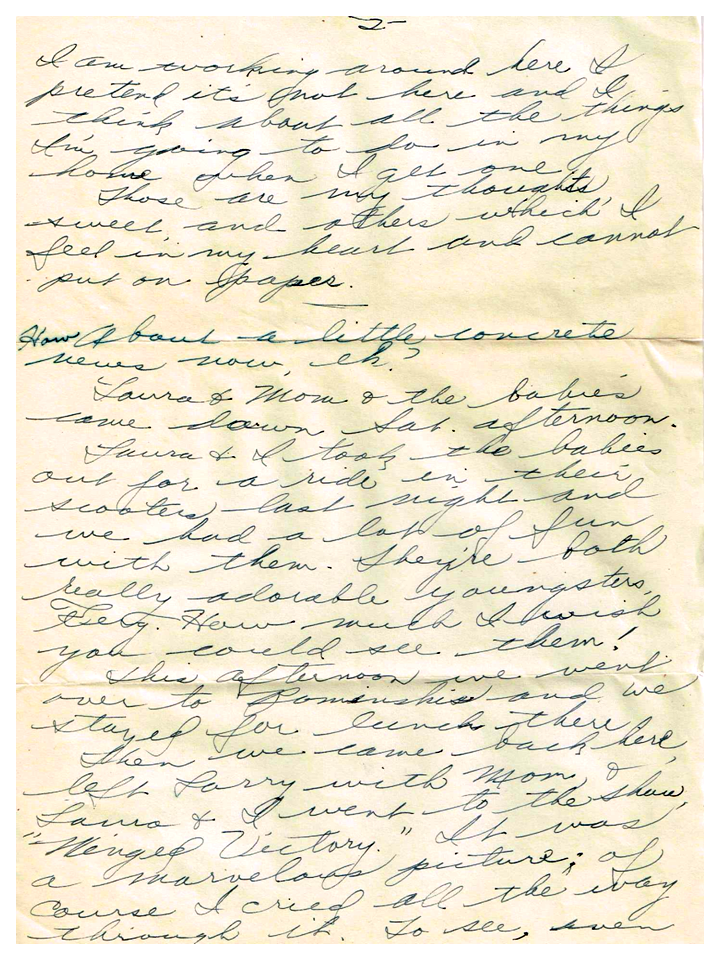 -2-
I am working around here I
pretend it's not here and I
think about all the things
I'm going to do in my
home when I get one.
Those are my thoughts,
sweet, and others which I
feel in my heart and cannot
put on paper.
How About a little concrete
news now, eh?
Laura & Mom & the babies
came down Sat. afternoon.
Laura & I took the babies
out for a ride in their
scooters last night and
we had a lot of fun
with them. They're both
really adorable youngsters,
How much I wish
you could see them!
This afternoon we went
over to and we
stayed for lunch there.
Then we came back here,
left Larry with Mom, &
Laura & I went to the show,
"Winged Victory." It was
a marvelous picture; of
course I cried all the way
through it. To see, even